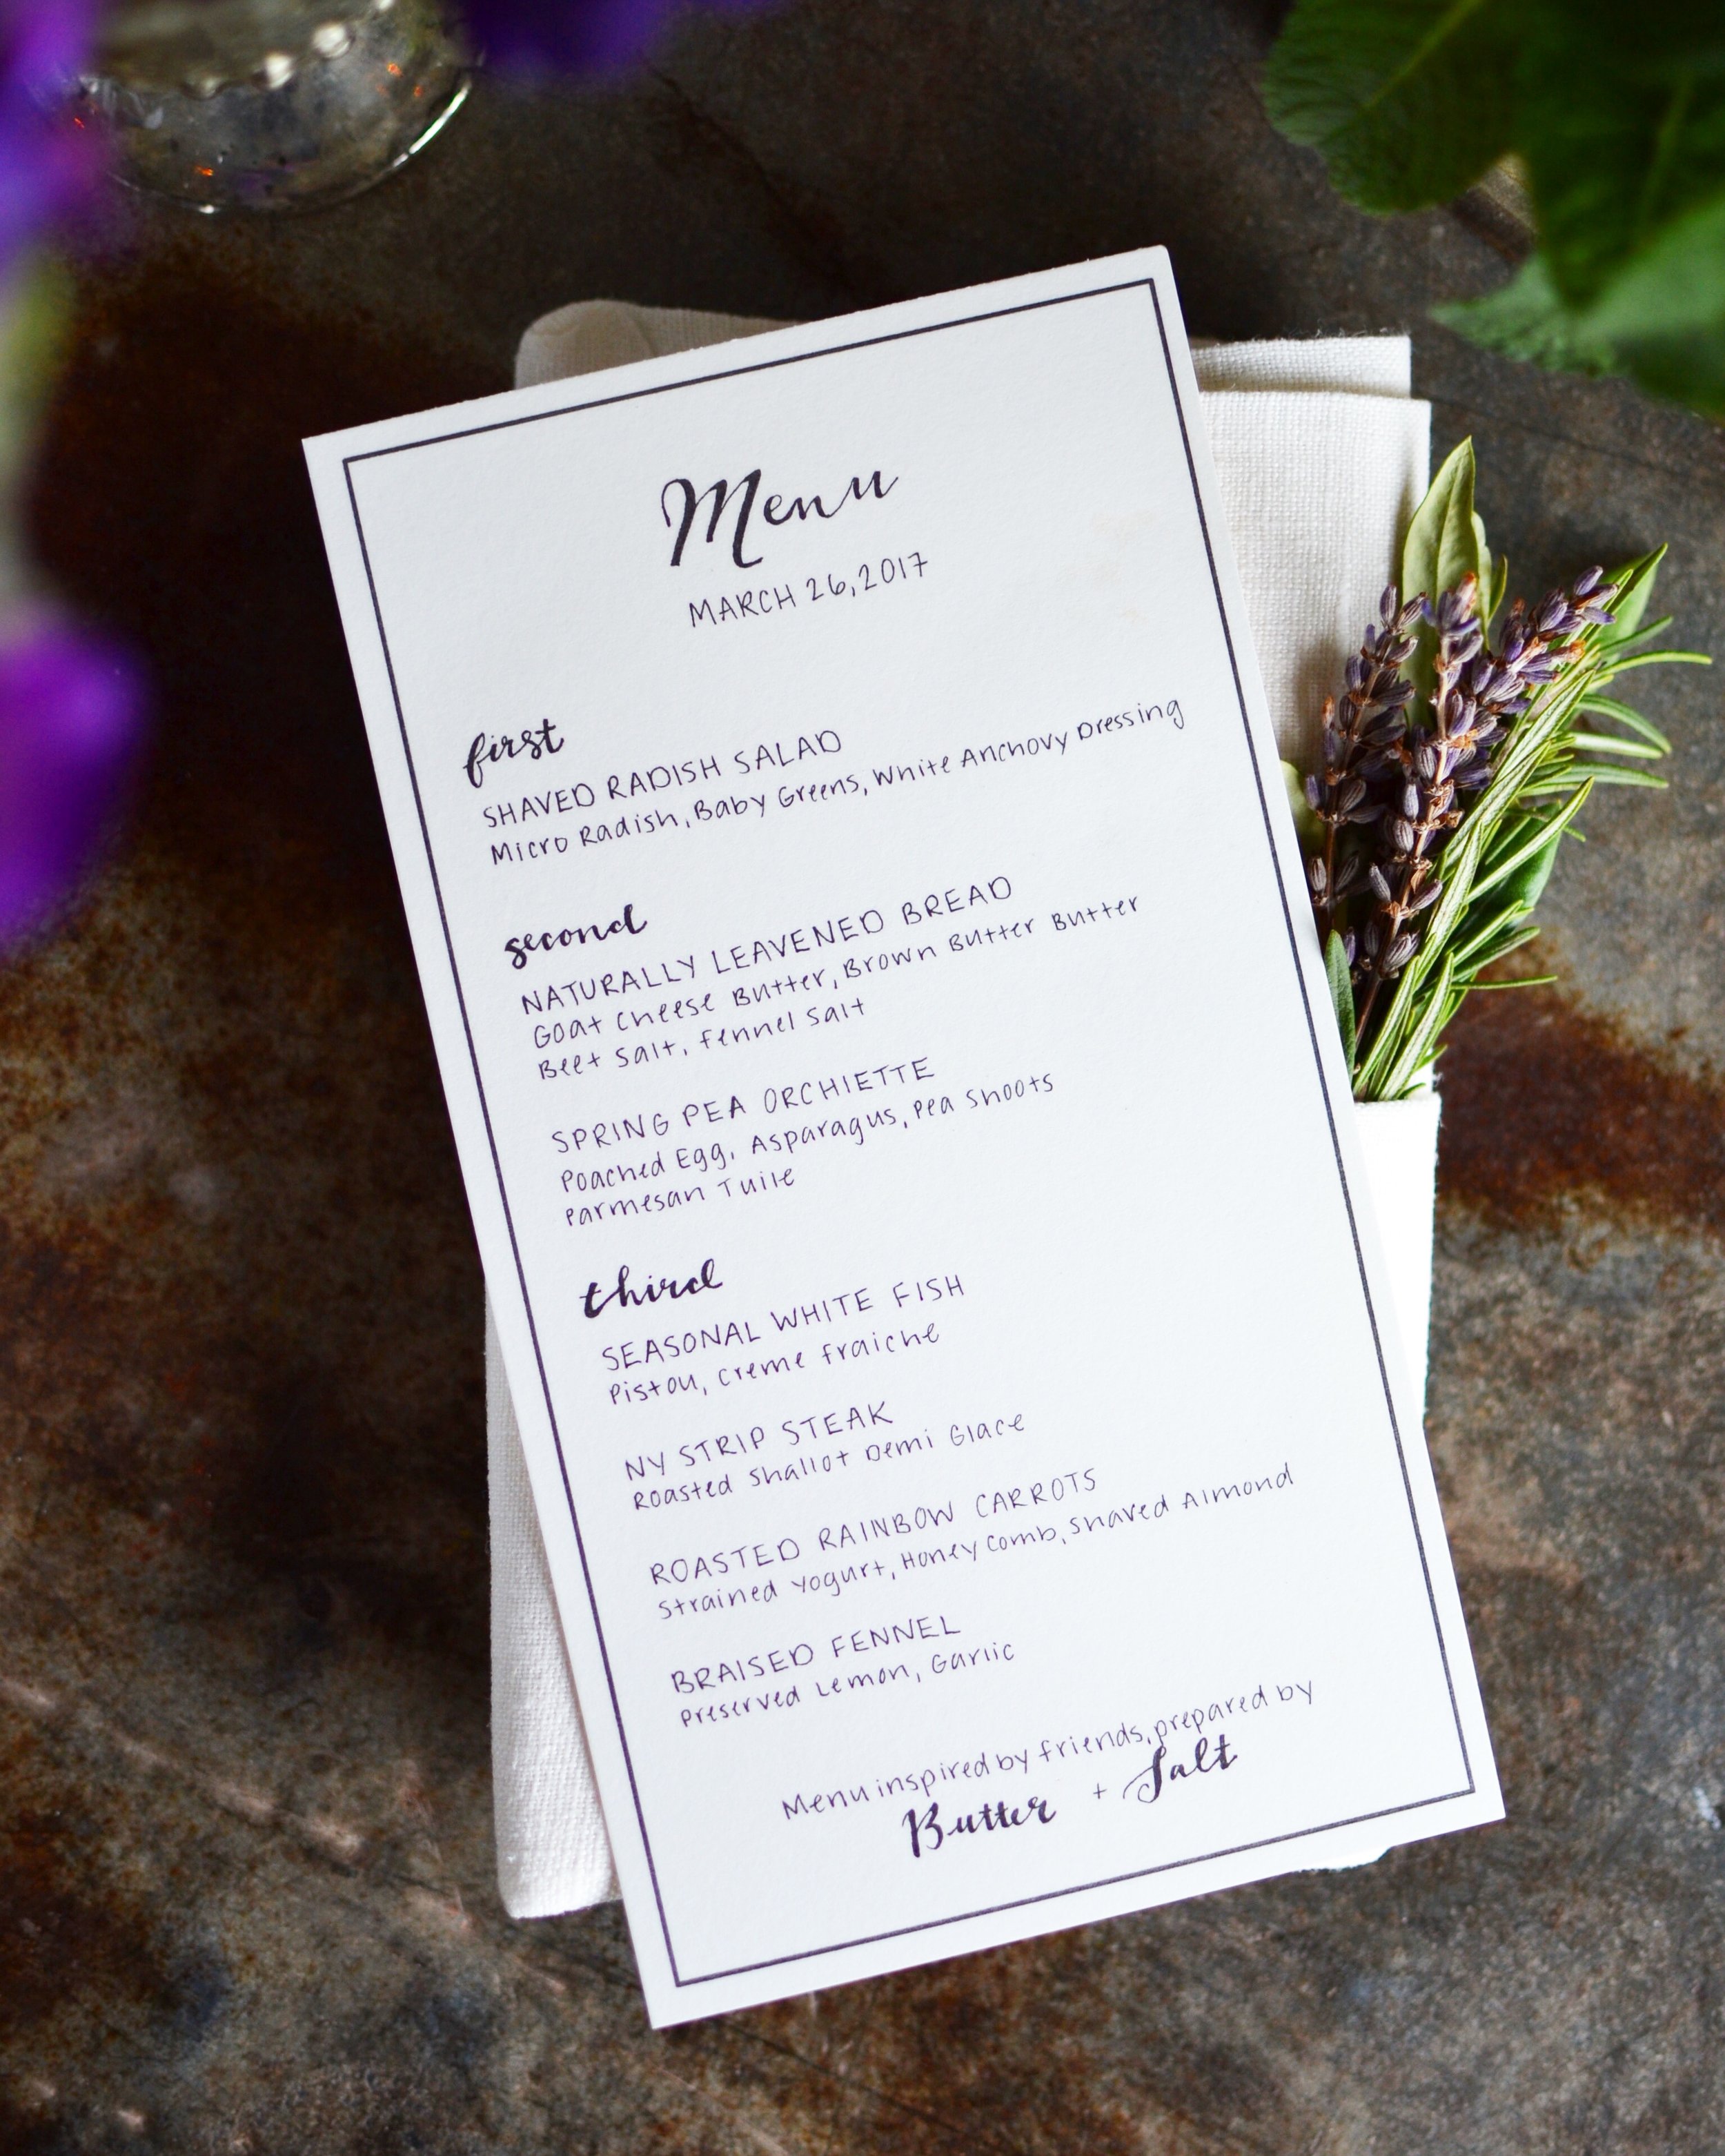 Menu
MARCH 26, 2017
first
SHAVED RADISH SALAD
Micro Radish, Baby Greens, White Anchovy Dressing
second
NATURALLY LEAVENED BREAD
Goat Cheese Butter, Brown Butter Butter
Beet Salt, Fennel Salt
SPRING PEA ORCHIETTE
Poached Egg, Asparagus, Pea Shoots
Parmesan Tuile
third
SEASONAL WHITE FISH
Pistou, Creme Fraiche
NY STRIP STEAK
Roasted Shallot Demi Glace
ROASTED RAINBOW CARROTS
Strained Yogurt, Honey Comb, Shaved Almond
BRAISED FENNEL
Preserved Lemon, Garlic
Menu inspired by friends, prepared by
Butter + Salt